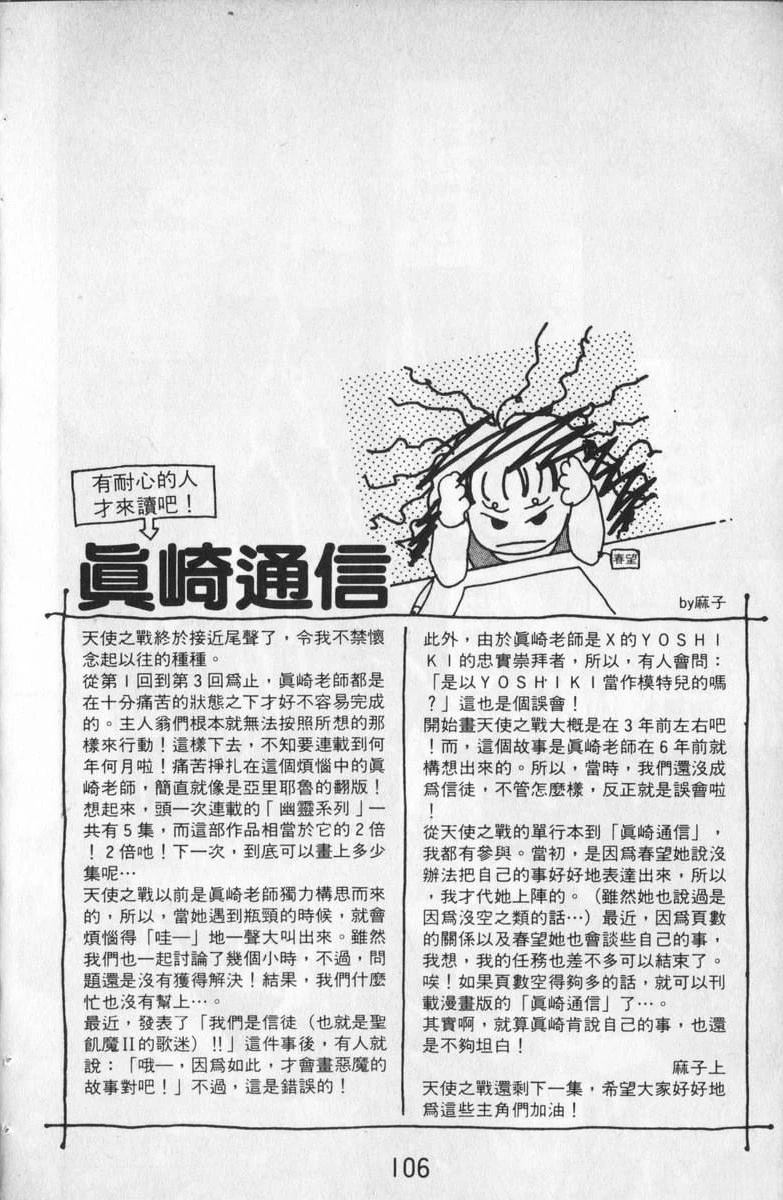 有耐心的人
才來讀吧！
眞崎通信
春望
by麻子
天使之戰終於接近尾聲了，令我不禁懷
念起以往的種種。
從第１回到第３回爲止，眞崎老師都是
在十分痛苦的狀態之下才好不容易完成
的。主人翁們根本就無法按照所想的那
樣來行動！這樣下去，不知要連載到何
年何月啦！痛苦掙扎在這個煩惱中的眞
崎老師，簡直就像是亞里耶魯的翻版！
想起來，頭一次連載的「幽靈系列」一
共有５集，而這部作品相當於它的２倍
！２倍吔！下一次，到底可以畫上多少
集呢…
天使之戰以前是眞崎老師獨力構思而來
的，所以，當她遇到瓶頸的時候，就會
煩惱得「哇—」地一聲大叫出來。雖然
我們也一起討論了幾個小時，不過，問
題還是沒有獲得解決！結果，我們什麼
忙也沒有幫上…。
最近，發表了「我們是信徒（也就是聖
飢魔II的歌迷）!!」這件事後，有人就
說：「哦—，因爲如此，才會畫惡魔的
故事對吧！」不過，這是錯誤的！
此外，由於眞崎老師是Ｘ的ＹＯＳＨＩ
ＫＩ的忠實崇拜者，所以，有人會問：
「是以ＹＯＳＨＩＫＩ當作模特兒的嗎
？」這也是個誤會！
開始畫天使之戰大概是在３年前左右吧
！而，這個故事是眞崎老師在６年前就
構想出來的。所以，當時，我們還沒成
爲信徒，不管怎麼樣，反正就是誤會啦
！
從天使之戰的單行本到「眞崎通信」，
我都有參與。當初，是因爲春望她說沒
辦法把自己的事好好地表達出來，所以
，我才代她上陣的。（雖然她也說過是
因爲沒空之類的話…）最近，因爲頁數
的關係以及春望她也會談些自己的事，
我想，我的任務也差不多可以結束了。
唉！如果頁數空得夠多的話，就可以刊
載漫畫版的「眞崎通信」了…。
其實啊，就算眞崎肯說自己的事，也還
是不夠坦白！
麻子上
天使之戰還剩下一集，希望大家好好地
爲這些主角們加油！
106